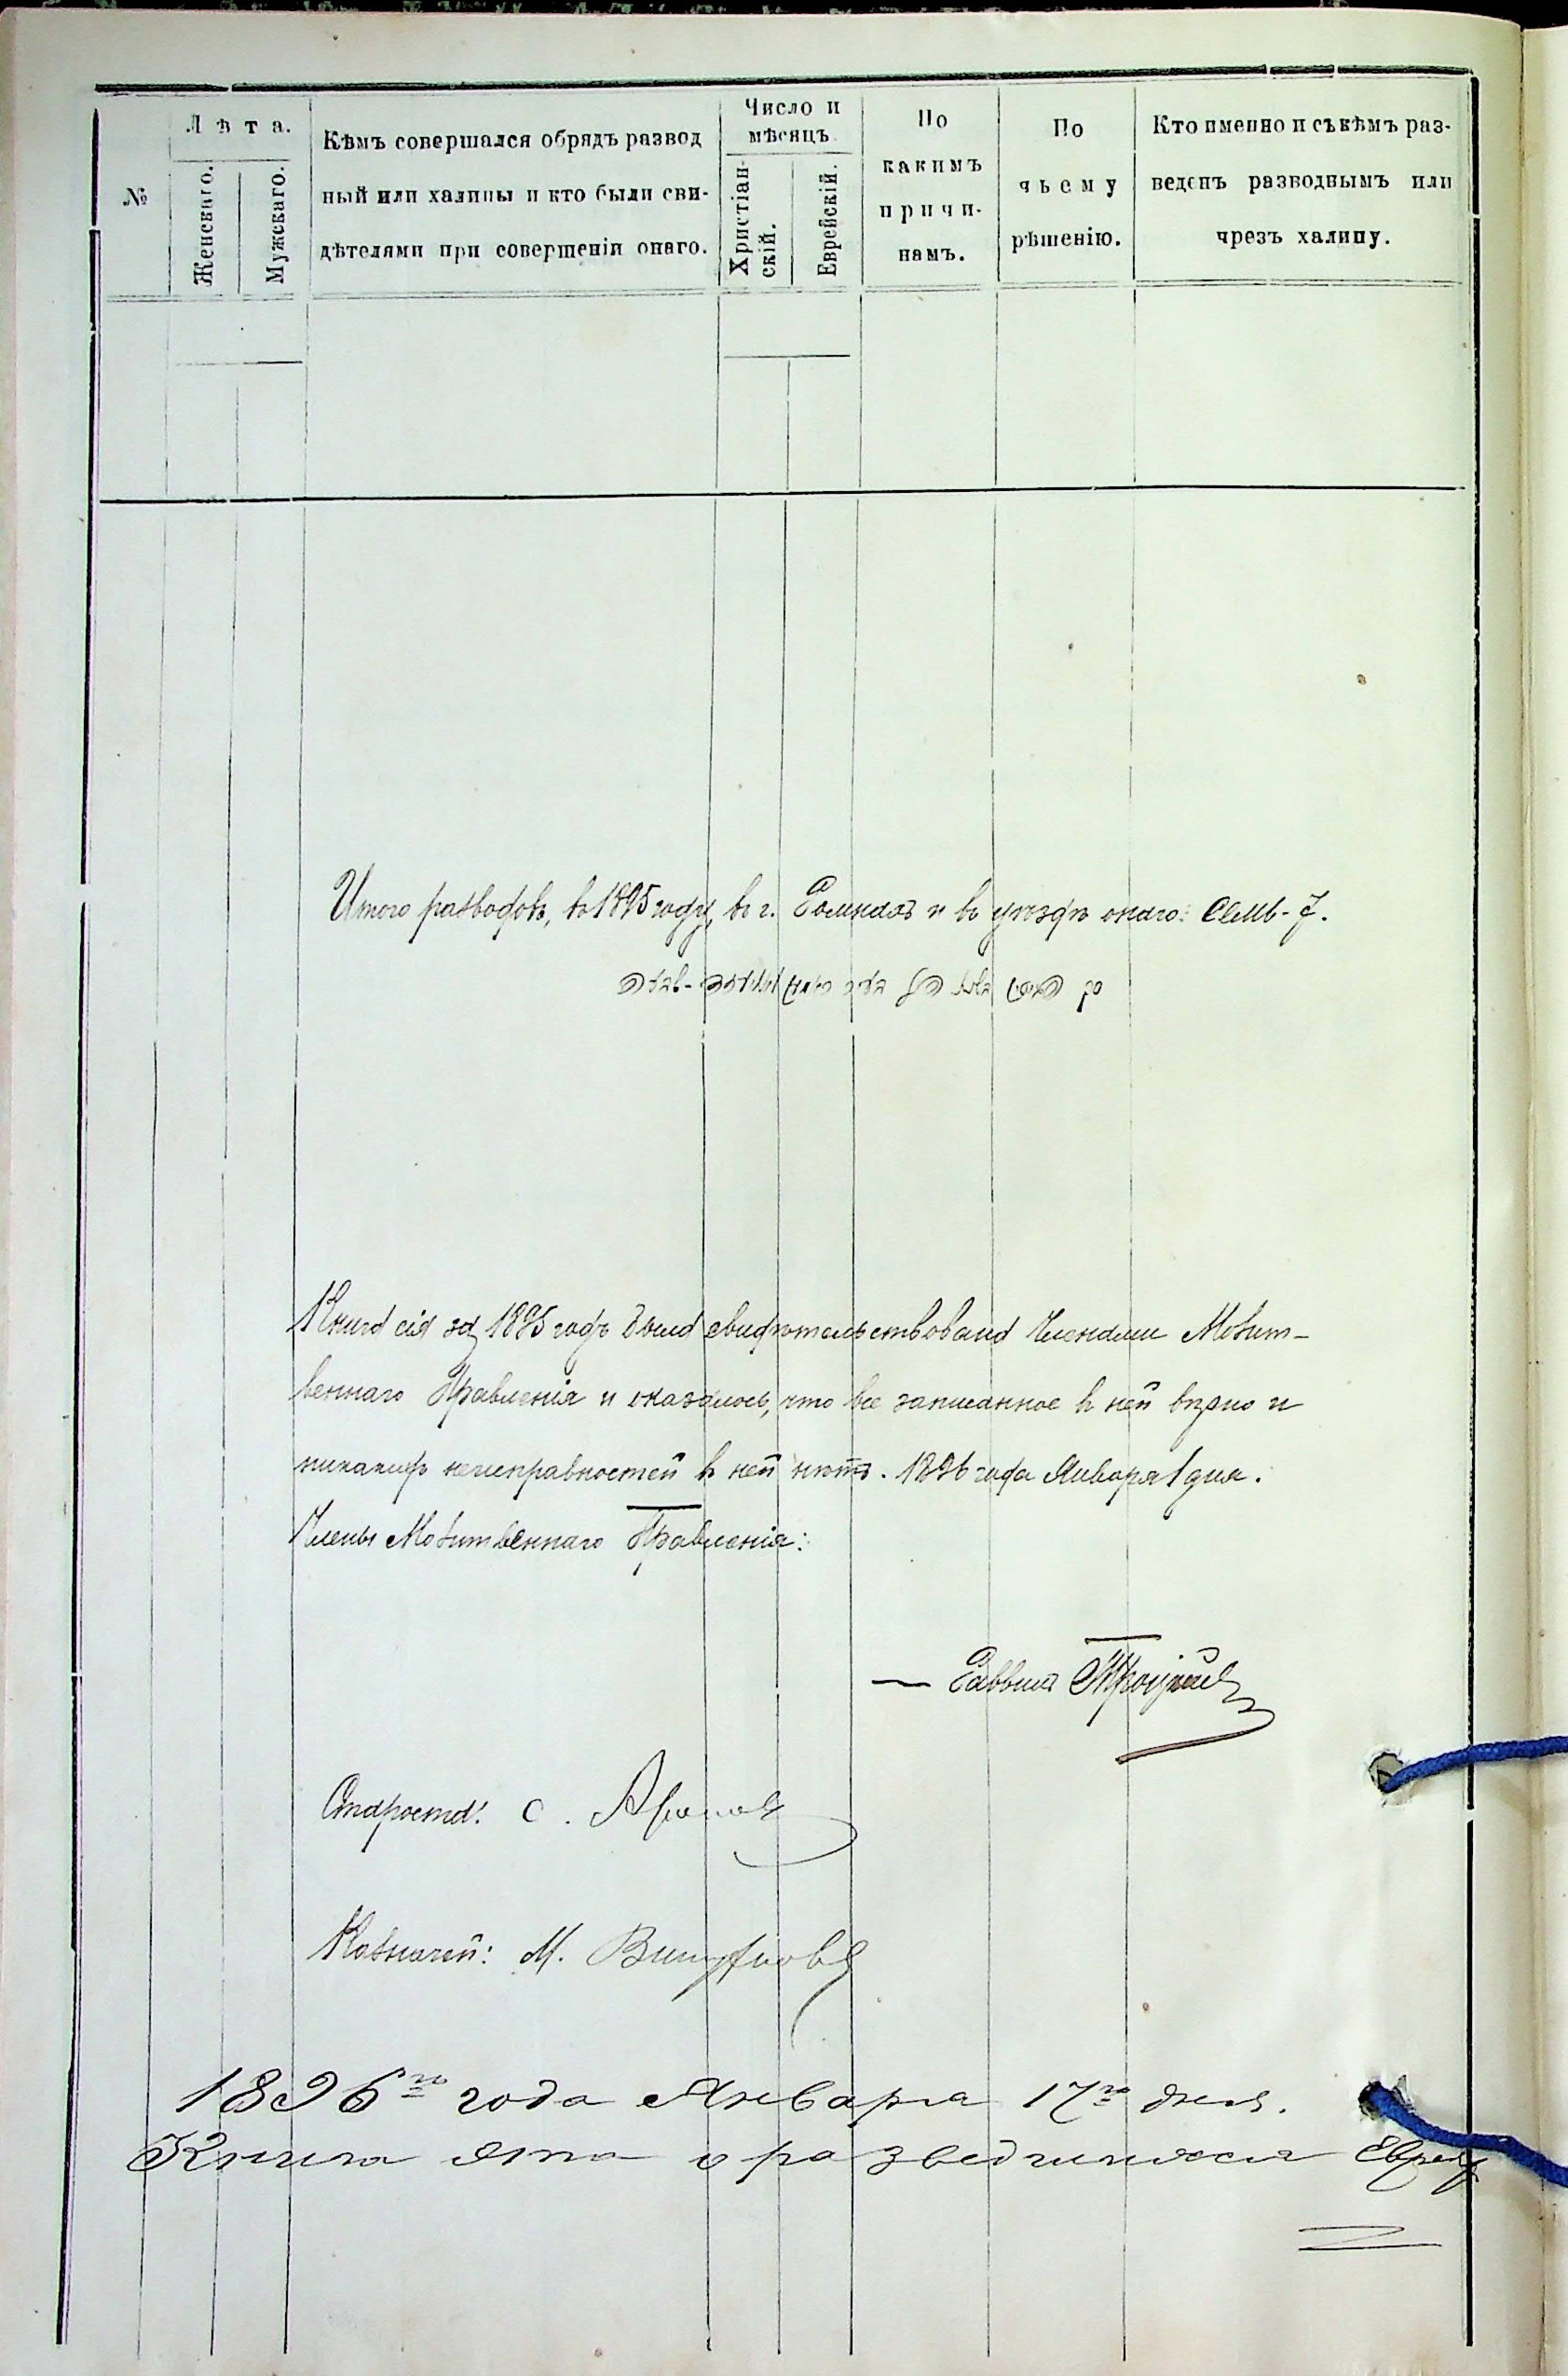 №
Лѣта.
Женскаго.
Мужскаго.
Кѣмъ совершался обрядъ развод
ный или халицы и кто были сви-
дѣтелями при совершеніи онаго.
Число и
мѣсяцъ
Христіан-
скій.
Еврейскій.
По
какимъ
причи-
намъ.
По
чьему
рѣшенію.
Кто именно и съ кѣмъ раз-
веденъ разводнымъ или
чрезъ халицу.
Итого разводовъ, въ 1895 году, въ г. и въ уѣздѣ онаго: Семь-7.
Книга сія за 1895 годъ была свидѣтельствована Членами Молит-
веннаго Правленія и оказалось, что все записанное в ней вѣрно и
никакихъ неисправностей в ней нѣтъ. 1896 года Января 1 дня.
Члены Молитвеннаго Правленія:
Раввинъ
Староста: С.
Казначей: М.
1896го года Января 17го дня.
Книга эта о разведшихся Евреях